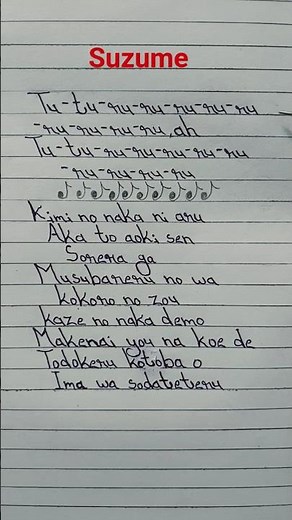 Suzume
Tu-tu-ru-ru-ru-ru-ru
-ru-ru-ru-ru, ah
Tu-tu-ru-ru-ru-ru-ru
-ru-ru-ru-ru
Kimi no naka ni aru
Aka to aoki sen
Sorera ga
Musubareru no wa
kokoro no zou
kaze no naka demo
Makenai you na koe de
Todokeru kotoba o
Ima wa sodateteru